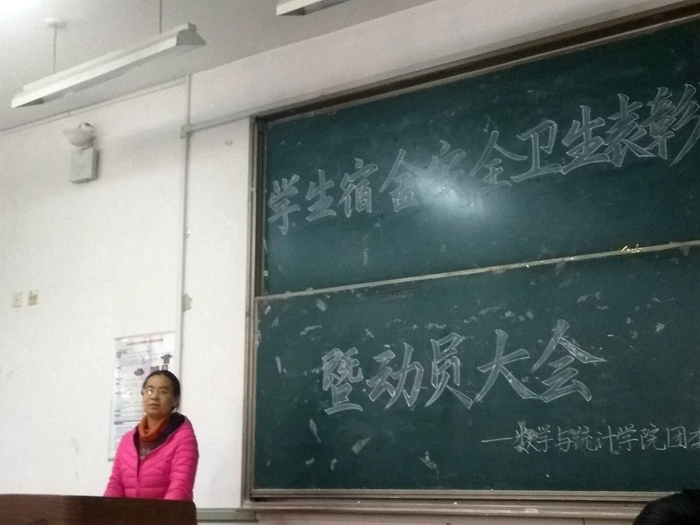 学生宿舍安全卫生表彰
暨动员大会
—数学与统计学院团